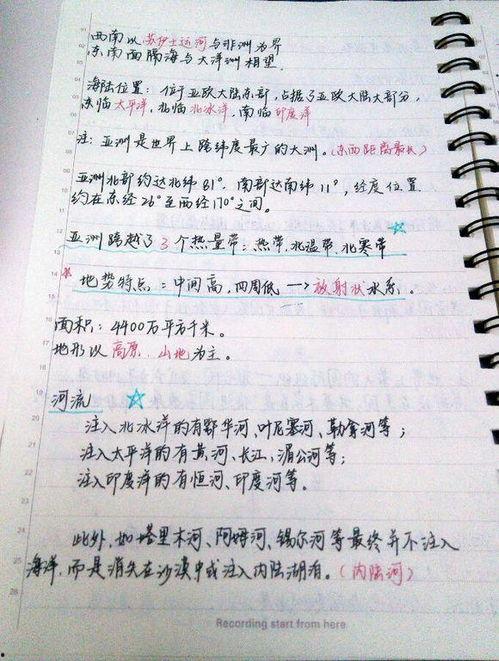 西南以苏伊士运河与非洲为界
东南面隔海与大洋洲相望.
海陆位置：位于亚欧大陆东部，占据了亚欧大陆大部分，
东临太平洋，北临北冰洋，南临印度洋
注：亚洲是世界上跨纬度最广的大洲。(东西距离最长)
亚洲北部约达北纬81°，南部达南纬11°，经度位置
约在东经26°至西经170°之间。
亚洲跨越了3个热量带：热带、北温带、北寒带
* 地势特点：中间高，四周低 → 放射状水系。
面积：4400万平方千米。
地形以高原、山地为主。
河流
注入北冰洋的有鄂毕河、叶尼塞河、勒拿河等；
注入太平洋的有黄河、长江、湄公河等；
注入印度洋的有恒河、印度河等。
此外，如塔里木河、阿姆河、锡尔河等最终并不注入
海洋，而是消失在沙漠中或注入内陆湖泊。(内陆河)
Recording start from here